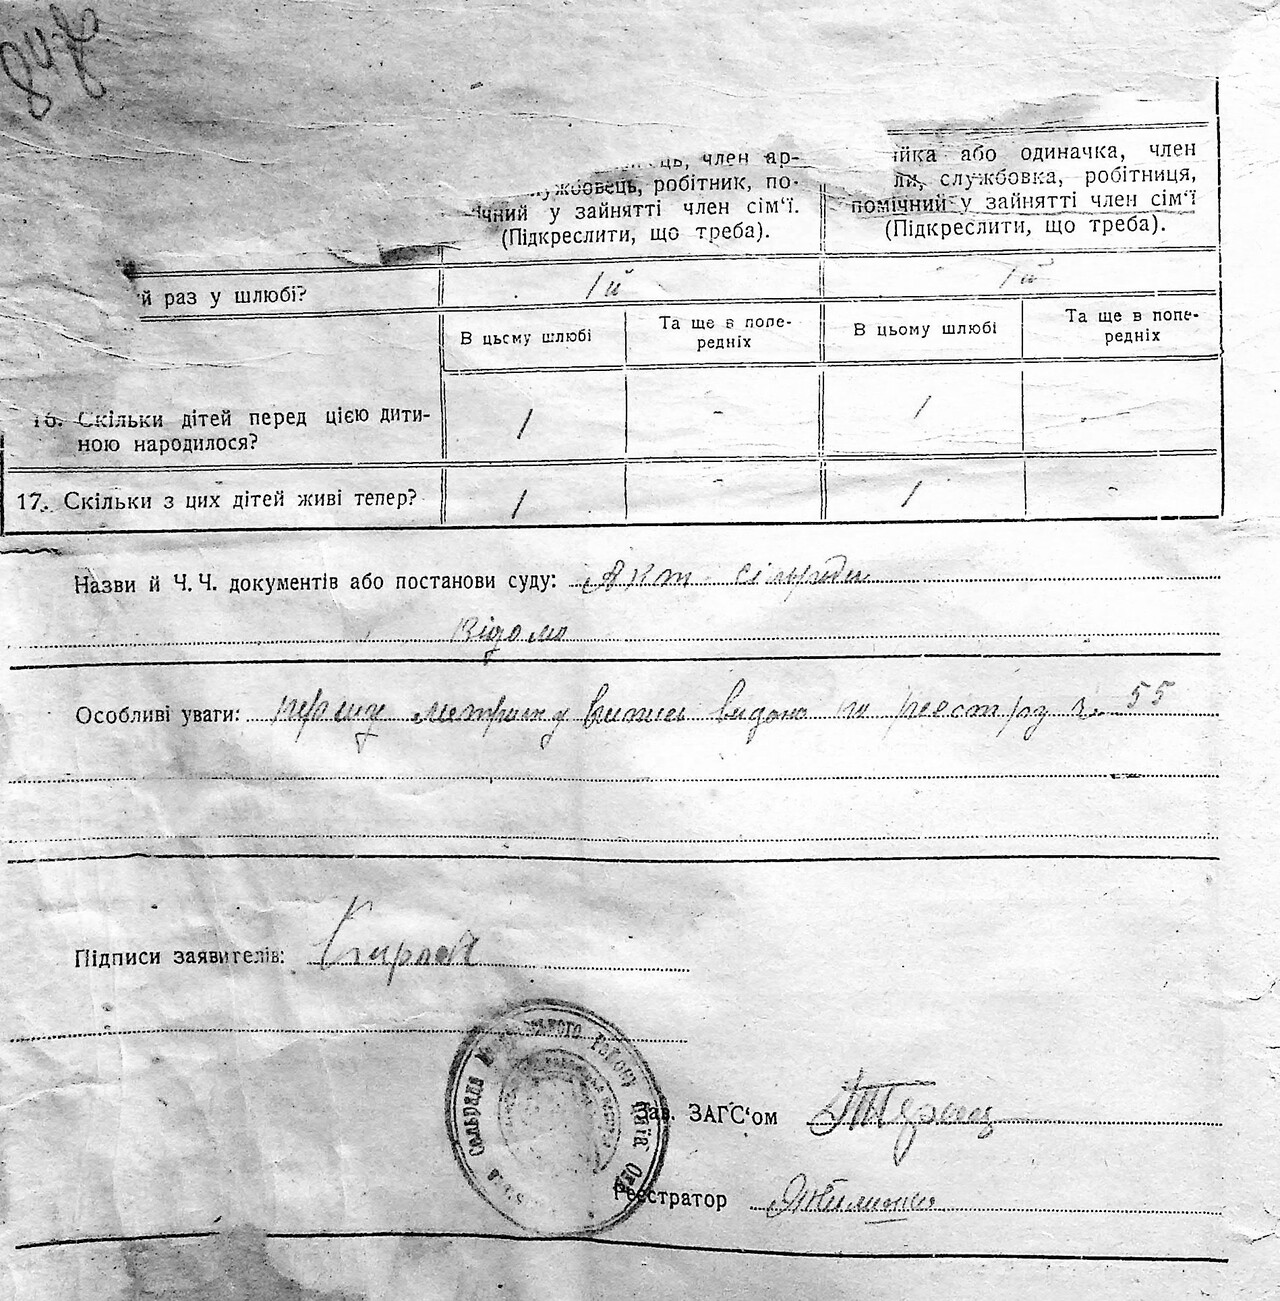 847
член ар-
службовець, робітник, по-
ічний у зайнятті член сім'ї.
(Підкреслити, що треба).
ійка або одиначка, член
ли, службовка, робітниця,
помічний у зайнятті член сім'ї
(Підкреслити, що треба).
й раз у шлюбі?
1й
1й
В цьому шлюбі
Та ще в попе-
редніх
В цьому шлюбі
Та ще в попе-
редніх
16. Скільки дітей перед цією дити-
ною народилося?
1
-
1
-
17. Скільки з цих дітей живі тепер?
1
-
1
-
Назви й Ч. Ч. документів або постанови суду: Акт сільради
Відомо
Особливі уваги: першу метричну випись видано по реестру ч. 55
Підписи заявителів:
Сельрада
району Київ Окр
Зав. ЗАГС'ом
Реєстратор